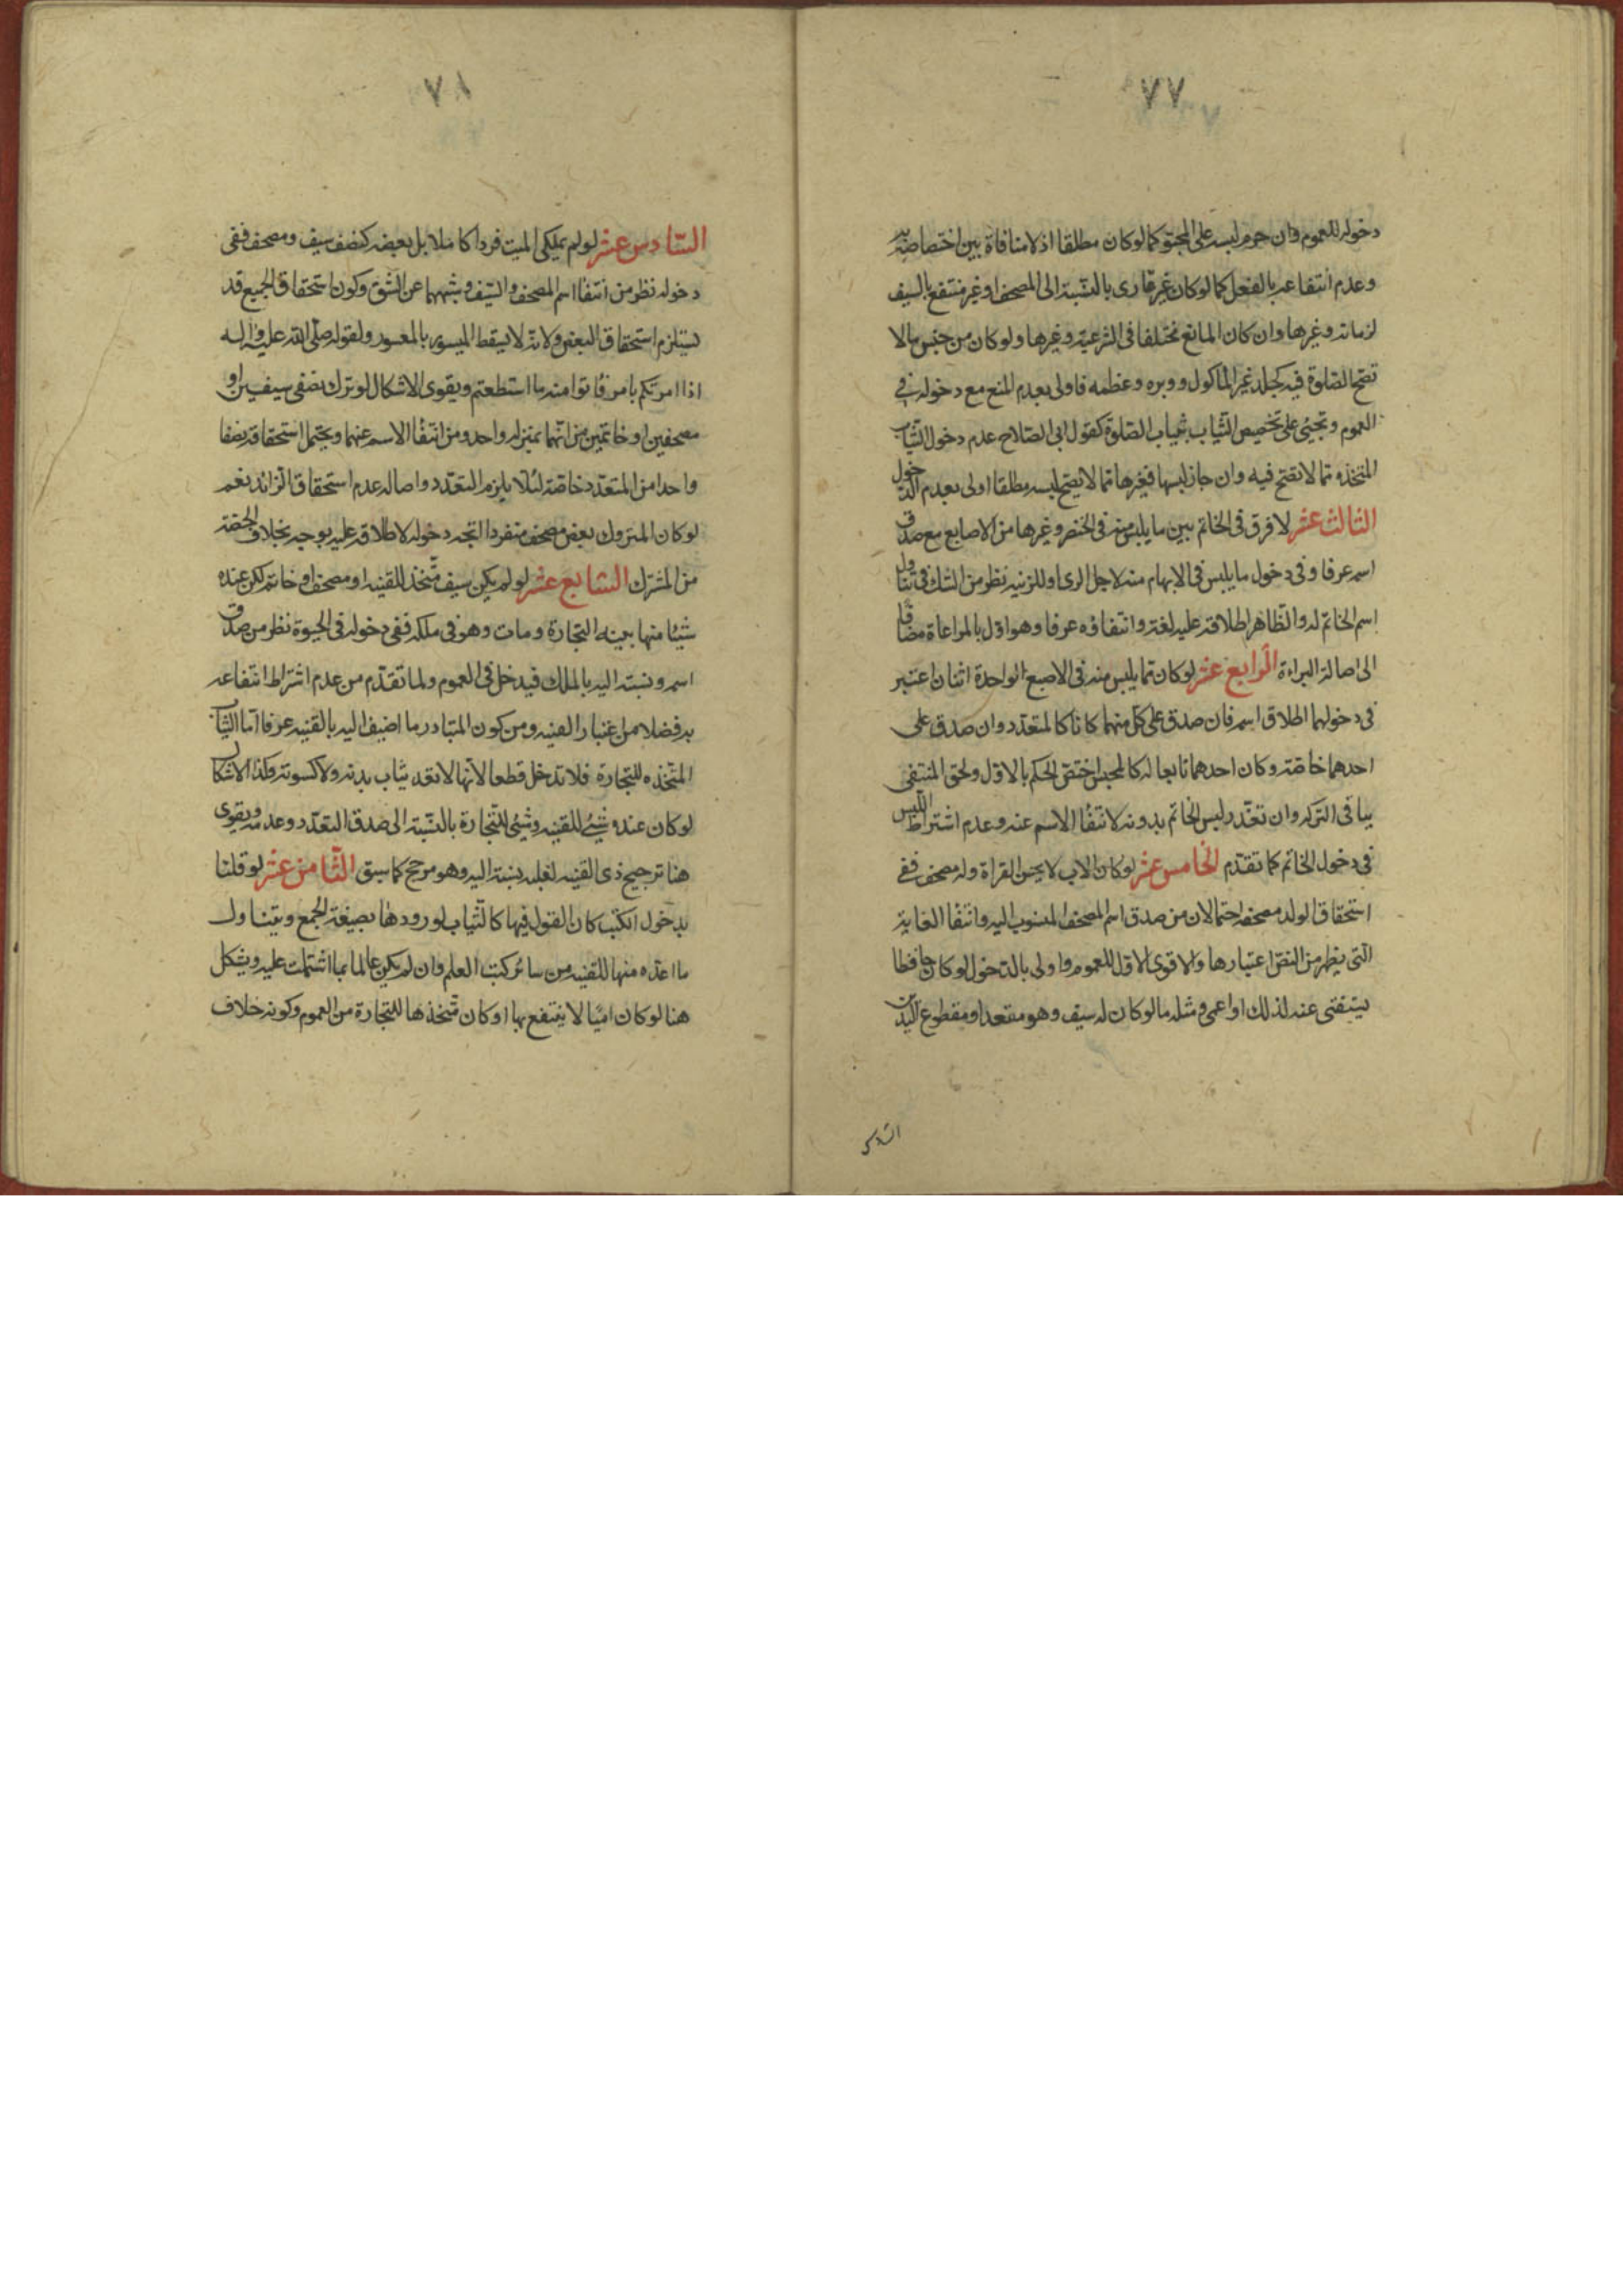 ٧٧
دخوله للعموم وان حرم لبسه على المحبو كما لو كان مطلقا اذ لا منافاة بين اختصاصه به
وعدم انتفاعه بالفعل كما لو كان غير قارى بالنسبة الى المصحف او غير منتفع بالسيف
لزمانه وغيرها وان كان المانع مختلفا فى الشرعية وغيرها ولو كان من جنس ما لا
تصح الصلوة فيه كجلد غير الماكول ووبره وعظمه فاولى بعدم المنع مع دخوله فى
العموم ويجئ على تخصيص الثياب بثياب الصلوة كقول ابى الصلاح عدم دخول الثياب
المتخذه مما لا تصح فيه وان جاز لبسها فغيرها مما لا يصح لبسه مطلقا اولى بعدم الدخول
الثالث عشر لا فرق فى الخاتم بين ما يلبس منه فى الخنصر وغيرها من الاصابع مع صدق
اسمه عرفا وفى دخول ما يلبس فى الابهام منه لاجل الرمى او للزنيه نظر من الشك فى تناول
اسم الخاتم له والظاهر اطلاقه عليه لغة وانتفاؤه عرفا وهو اولى بالمراعاة مضافا
الى اصالة البراءة الرابع عشر لو كان مما يلبس منه فى الاصبع الواحدة اثنان اعتبر
فى دخولهما اطلاق اسمه فان صدق على كل منهما كانا كالمتعدد وان صدق على
احدهما خاصة وكان احدهما تابعا له كالمحبس اختص الحكم بالاول ولحق المنتفى
بباقى التركه وان تعذر لبس الخاتم بدونه لانتفا الاسم عنه وعدم اشتراط اللبس
فى دخول الخاتم كما تقدم الخامس عشر لو كان الاب لا يحسن القراة وله مصحف ففى
استحقاق الولد مصحفه احتمالان من صدق اسم المصحف المنسوب اليه وانتفا الغاية
التى يظهر من النص اعتبارها والاقوى الاول للعموم واولى بالدخول لو كان حافظا
يستغنى عنه لذلك او اعمى ومثله ما لو كان له سيف وهو مقعد او مقطوع اليدين
السادس
٧٨
السادس عشر لو لم يملك الميت فردا كاملا بل بعضه كنصف سيف ومصحف ففى
دخوله نظر من انتفا اسم المصحف والسيف وشبههما عن الشق وكون استحقاق الجميع قد
يستلزم استحقاق البعض ولانه لا يسقط الميسور بالمعسور ولقوله صلى الله عليه واله
اذا امرتكم بامر فاتوا منه ما استطعتم ويقوى الاشكال لو ترك نصفى سيفين او
مصحفين او خاتمين من انهما بمنزلة واحد ومن انتفا الاسم عنهما ويحتمل استحقاقه نصفا
واحدا من المتعدد خاصة لئلا يلزم التعدد واصالة عدم استحقاق الزائد نعم
لو كان المتروك بعض مصحف منفردا اتجه دخوله لاطلاقه عليه بوجه بخلاف الحصة
من المشترك السابع عشر لو لم يكن سيف متخذ للقنيه او مصحف او خاتم لكن عنده
شيئا منها بنيه التجارة ومات وهو فى ملكه ففى دخوله فى الحبوة نظر من صدق
اسمه ونسبته اليه بالملك فيدخل فى العموم ولما تقدم من عدم اشتراط انتفاعه
به فضلا من اعتبار القنيه ومن كون المتبادر ما اضيف اليه بالقنيه عرفا اما الثياب
المتخذه للتجارة فلا تدخل قطعا لانها لا تعد ثياب بدنه ولا كسوته وكذا الاشكال
لو كان عنده شيئ للقنيه وشيئ للتجارة بالنسبة الى صدق التعدد وعدمه ويقوى
هنا ترجيح ذى القنيه لغلبه نسبته اليه وهو مرجح كما سبق الثامن عشر لو قلنا
بدخول الكتب كان القول فيها كالثياب لورودها بصيغة الجمع ويتناول
ما اعده منها للقنيه من سائر كتب العلم وان لم يكن عالما بما اشتملت عليه ويشكل
هنا لو كان اميا لا ينتفع بها او كان متخذها للتجارة من العموم وكونه خلاف